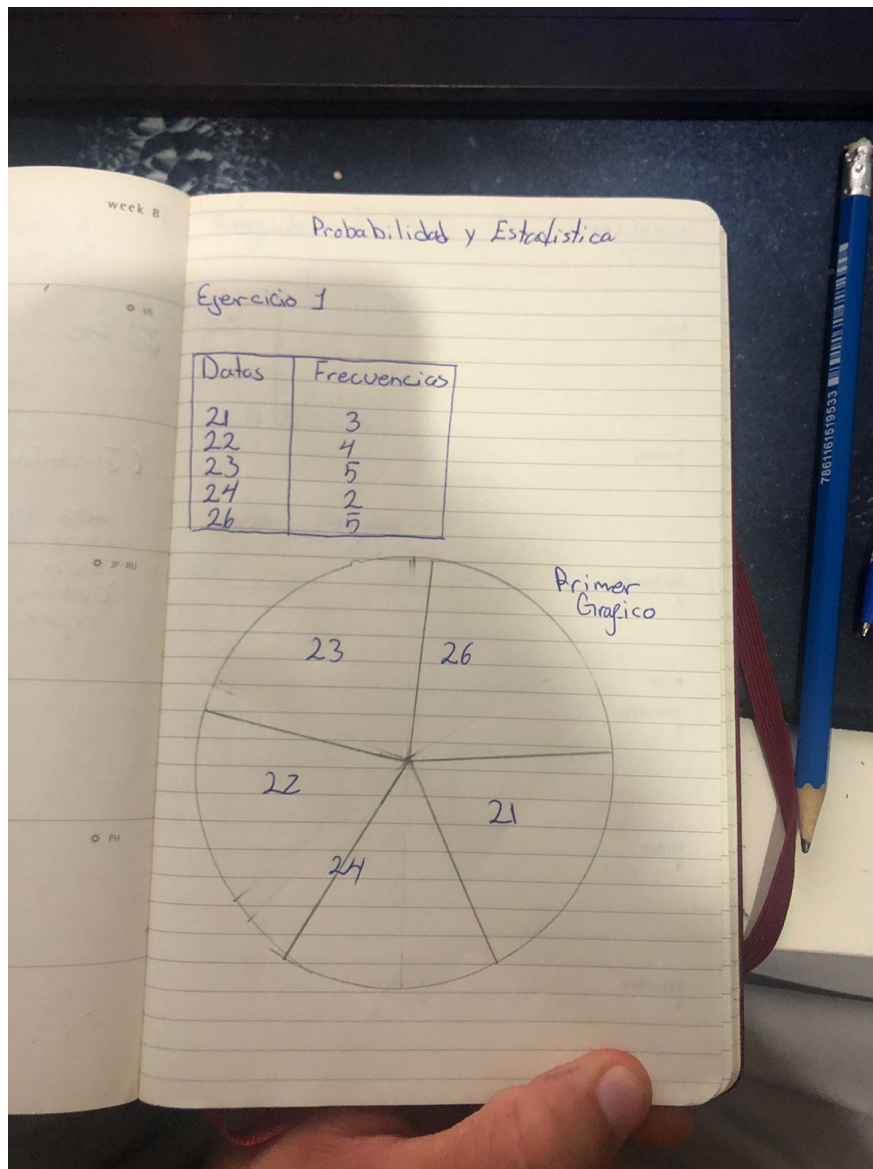 week 8
Probabilidad y Estadistica
US
Ejercicio 1
Datos Frecuencias
21 3
22 4
23 5
24 2
26 5
JP RU
Primer
Grafico
23 26
22
21
24
PH
7861161519533